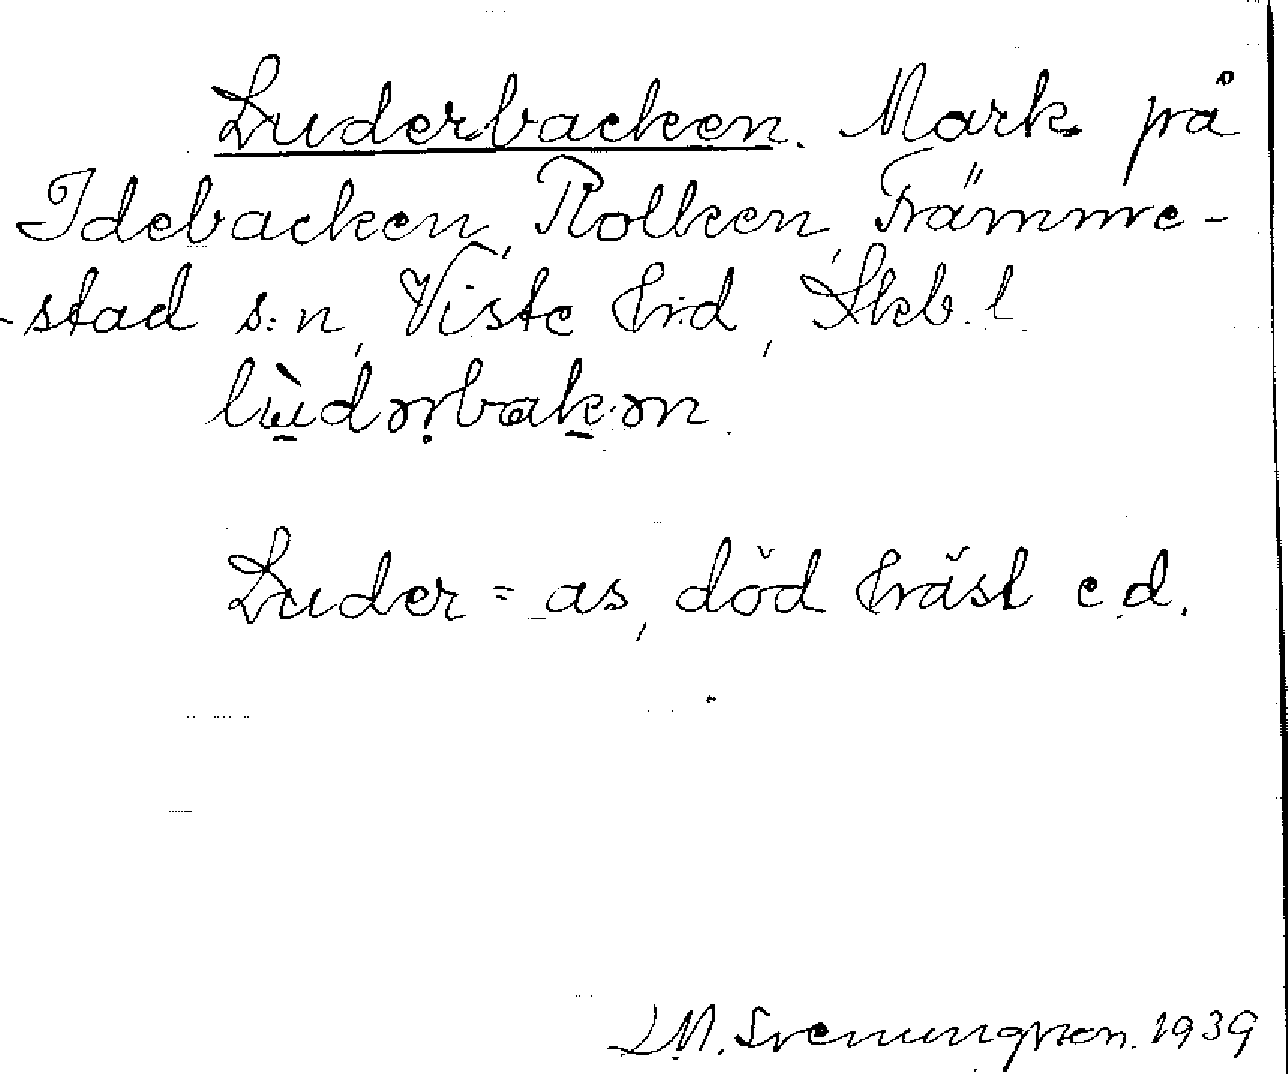 Luderbacken. Mark på
Idebacken, Rolken, Främme-
-stad s:n, Viste hrd, Skb. l.
lùdərbakən
Luder = as, död häst e.d.
L.M. Svenungsson. 1939